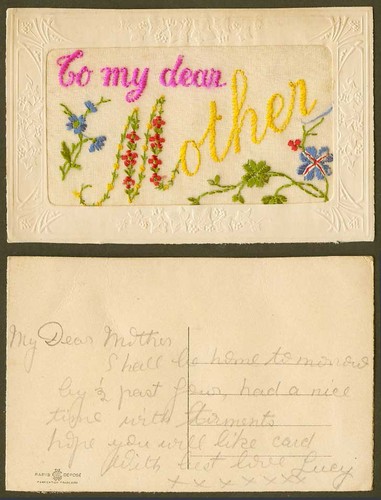 To my dear
Mother
My Dear Mother
Shall be home tomorrow
by ½ past four, had a nice
time with
hope you will like card
With best love Lucy
x x x x x x x
PARIS